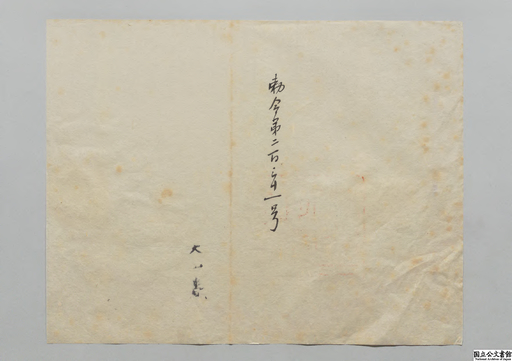 勅令第二百二十一号
国立公文書館
National Archives of Japan